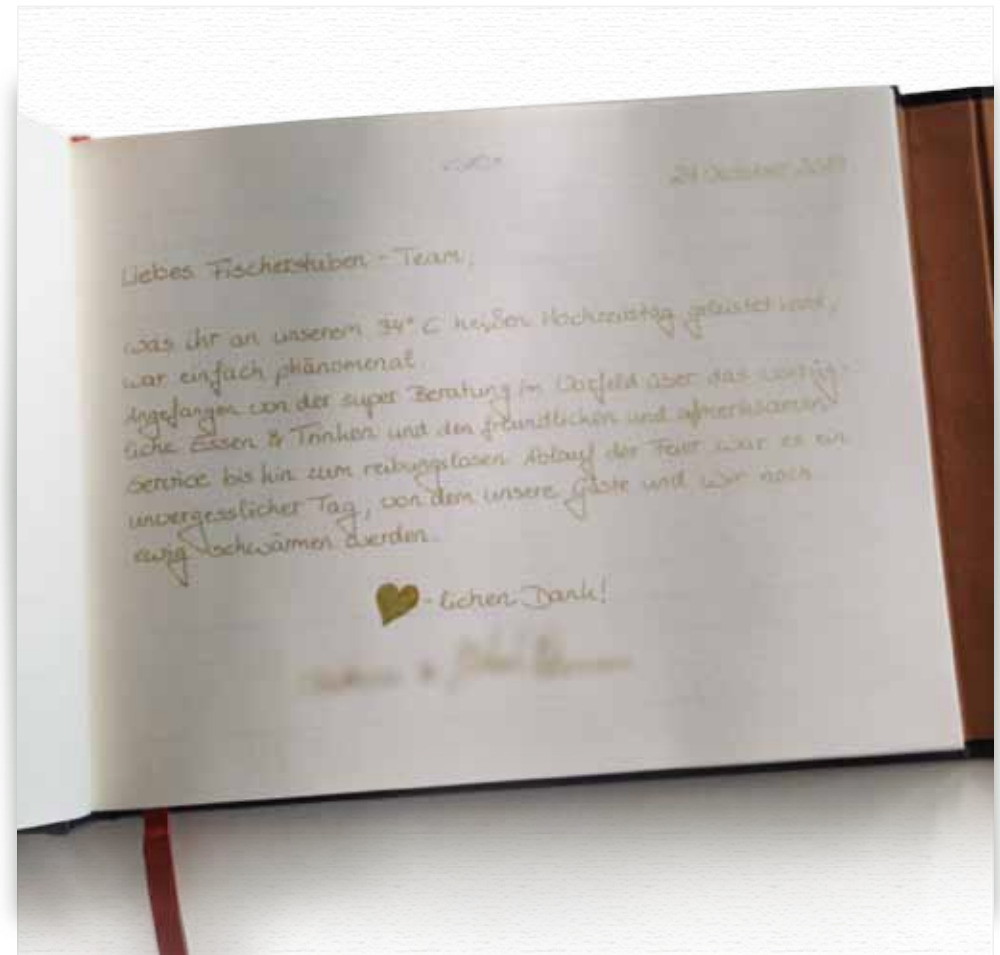 24 October 2019
Liebes Fischerstuben-Team,
was ihr an unserem 34°C heißen Hochzeitstag geleistet habt,
war einfach phänomenal.
Angefangen von der super Beratung im Vorfeld über das vorzüg-
liche Essen & Trinken und den freundlichen und aufmerksamen
Service bis hin zum reibungslosen Ablauf der Feier war es ein
unvergesslicher Tag, von dem unsere Gäste und wir noch
ewig schwärmen werden.
-lichen Dank!